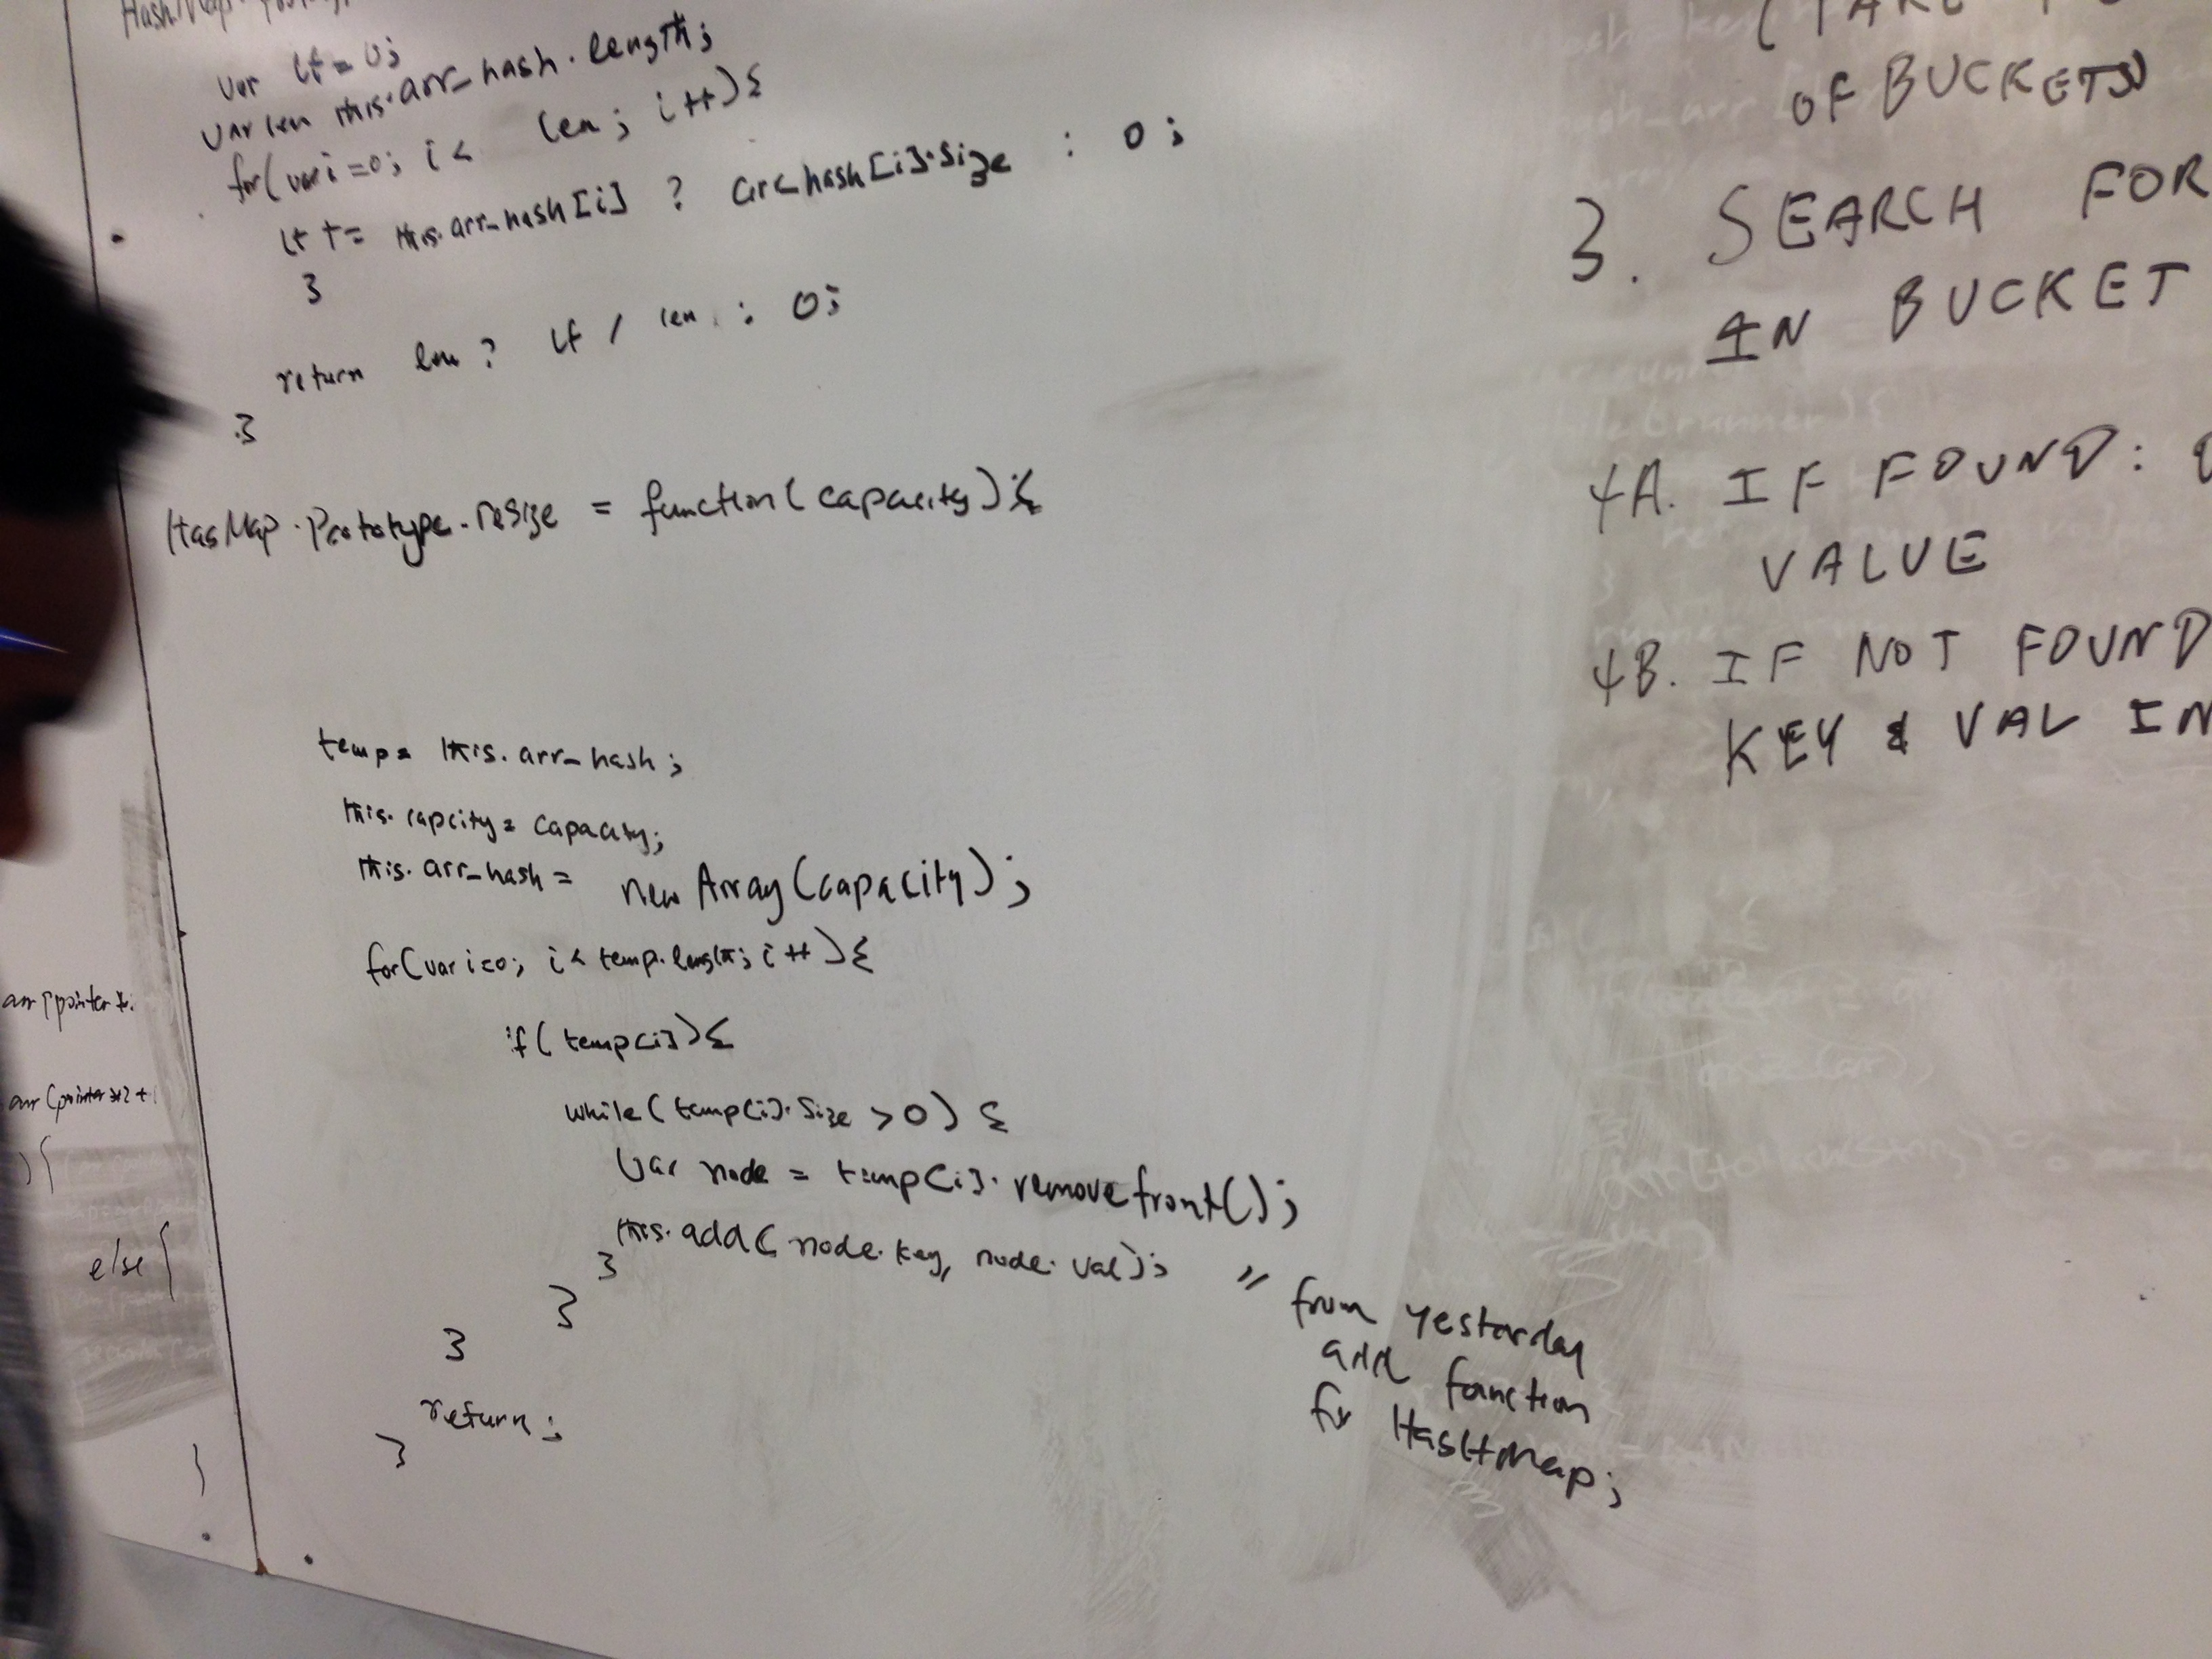 HashMap.
var lf = 0;
var len this.arr_hash.length;
for(var i=0; i < len; i++){
lf += this.arr_hash[i] ? arr_hash[i].size : 0;
}
return len ? lf / len : 0;
}
HasMap.Prototype.resize = function(capacity){
temp = this.arr_hash;
this.capcity = capacity;
this.arr_hash = new Array(capacity);
for(var i=0; i < temp.length; i++){
if(temp[i]){
while(temp[i].size > 0) {
var node = temp[i].removefront();
this.add(node.key, node.val); //from yesterday
add function
for HashMap;
}
}
}
return;
}
OF BUCKETS)
3. SEARCH FOR
IN BUCKET
4A. IF FOUND:
VALUE
4B. IF NOT FOUND
KEY & VAL IN
arr[pointer
arr[pointer*2+
){
else{
}